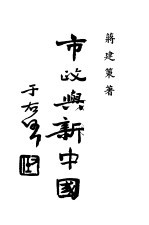 蔣建策著
市政與新中國
于右任